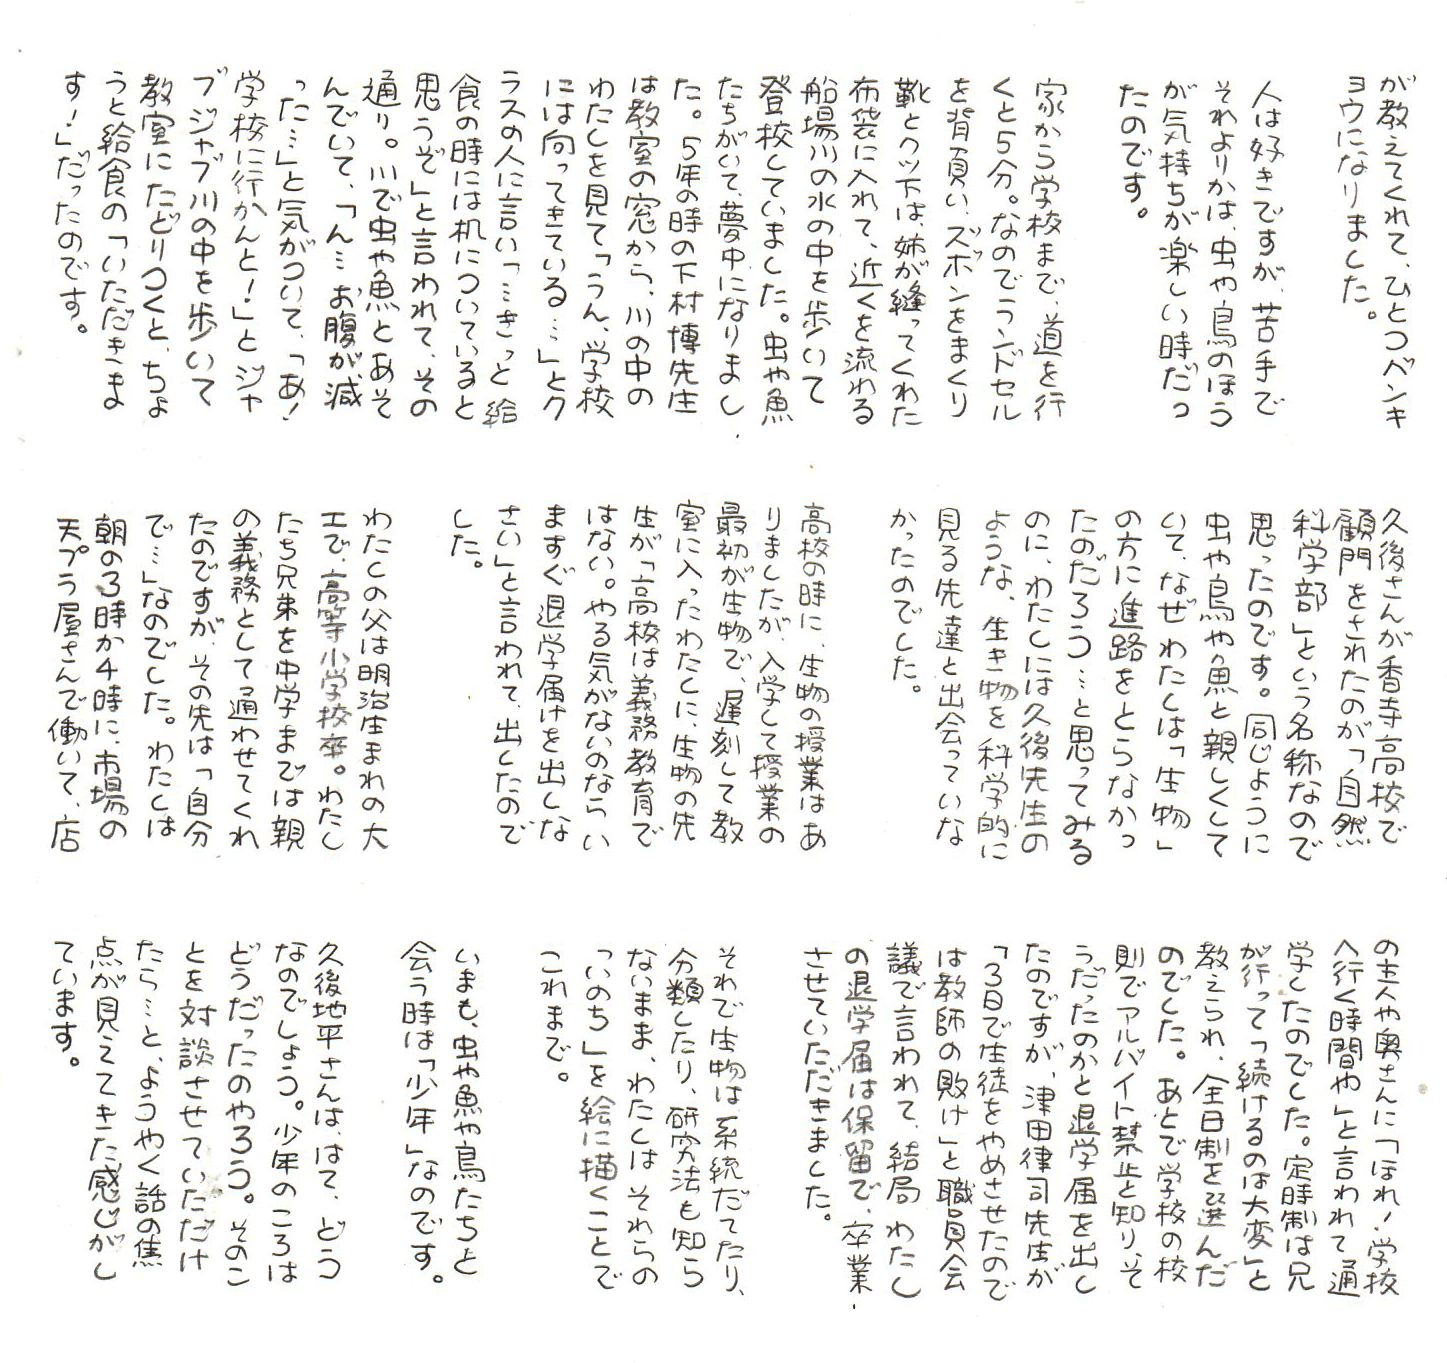 が教えてくれて、ひとつベンキ
ョウになりました。
人は好きですが、苦手で
それよりかは、虫や鳥のほう
が気持ちが楽しい時だっ
たのです。
家から学校まで、道を行
くと5分。なのでランドセル
を背負い、ズボンをまくり
靴とクツ下は、姉が縫ってくれた
布袋に入れて、近くを流れる
船場川の水の中を歩いて
登校していました。虫や魚
たちがいて、夢中になりまし
た。5年の時の下村博先生
は教室の窓から、川の中の
わたしを見て「うん、学校
には向ってきている…」とク
ラスの人に言い「…きっと給
食の時には机についていると
思うぞ」と言われて、その
通り。川で虫や魚とあそ
んでいて、「ん…お腹が、減
った…」と気がついて、「あ!
学校に行かんと!」とジャ
ブジャブ川の中を歩いて
教室にたどりつくと、ちょ
うと給食の「いただきま
す!」だったのです。
久後さんが香寺高校で
顧門をされたのが「自然
科学部」という名称なので
思ったのです。同じように
虫や鳥や魚と親しくして
いて、なぜわたしは「生物」
の方に進路をとらなかっ
たのだろう…と思ってみる
のに、わたしには久後先生の
ような、生き物を科学的に
見る先達と出会っていな
かったのでした。
高校の時に、生物の授業はあ
りましたが、入学して授業の
最初が生物で、遅刻して教
室に入ったわたしに、生物の先
生が「高校は義務教育で
はない。やる気がないのならい
ますぐ退学届けを出しな
さい」と言われて、出したので
した。
わたしの父は明治生まれの大
工で、高等小学校卒。わたし
たち兄弟を中学までは親
の義務として通わせてくれ
たのですが、その先は「自分
で…」なのでした。わたしは
朝の3時か4時に、市場の
天プラ屋さんで働いて、店
の主人や奥さんに「ほれ!学校
へ行く時間や」と言われて通
学したのでした。定時制は兄
が行って「続けるのは大変」と
教えられ、全日制を選んだ
のでした。あとで学校の校
則でアルバイト禁止と知り、そ
うだったのかと退学届を出し
たのですが、津田律司先生が
「3日で生徒をやめさせたので
は教師の敗け」と職員会
議で言われて、結局わたし
の退学届は保留で、卒業
させていただきました。
それで生物は系統だてたり、
分類したり、研究法も知ら
ないまま、わたしはそれらの
「いのち」を絵に描くことで
これまで。
いまも、虫や魚や鳥たちと
会う時は「少年」なのです。
久後地平さんは、はて、どう
なのでしょう。少年のころは
どうだったのやろう。そのこ
とを対談させていただけ
たら…と、ようやく話の焦
点が見えてきた感じがし
ています。